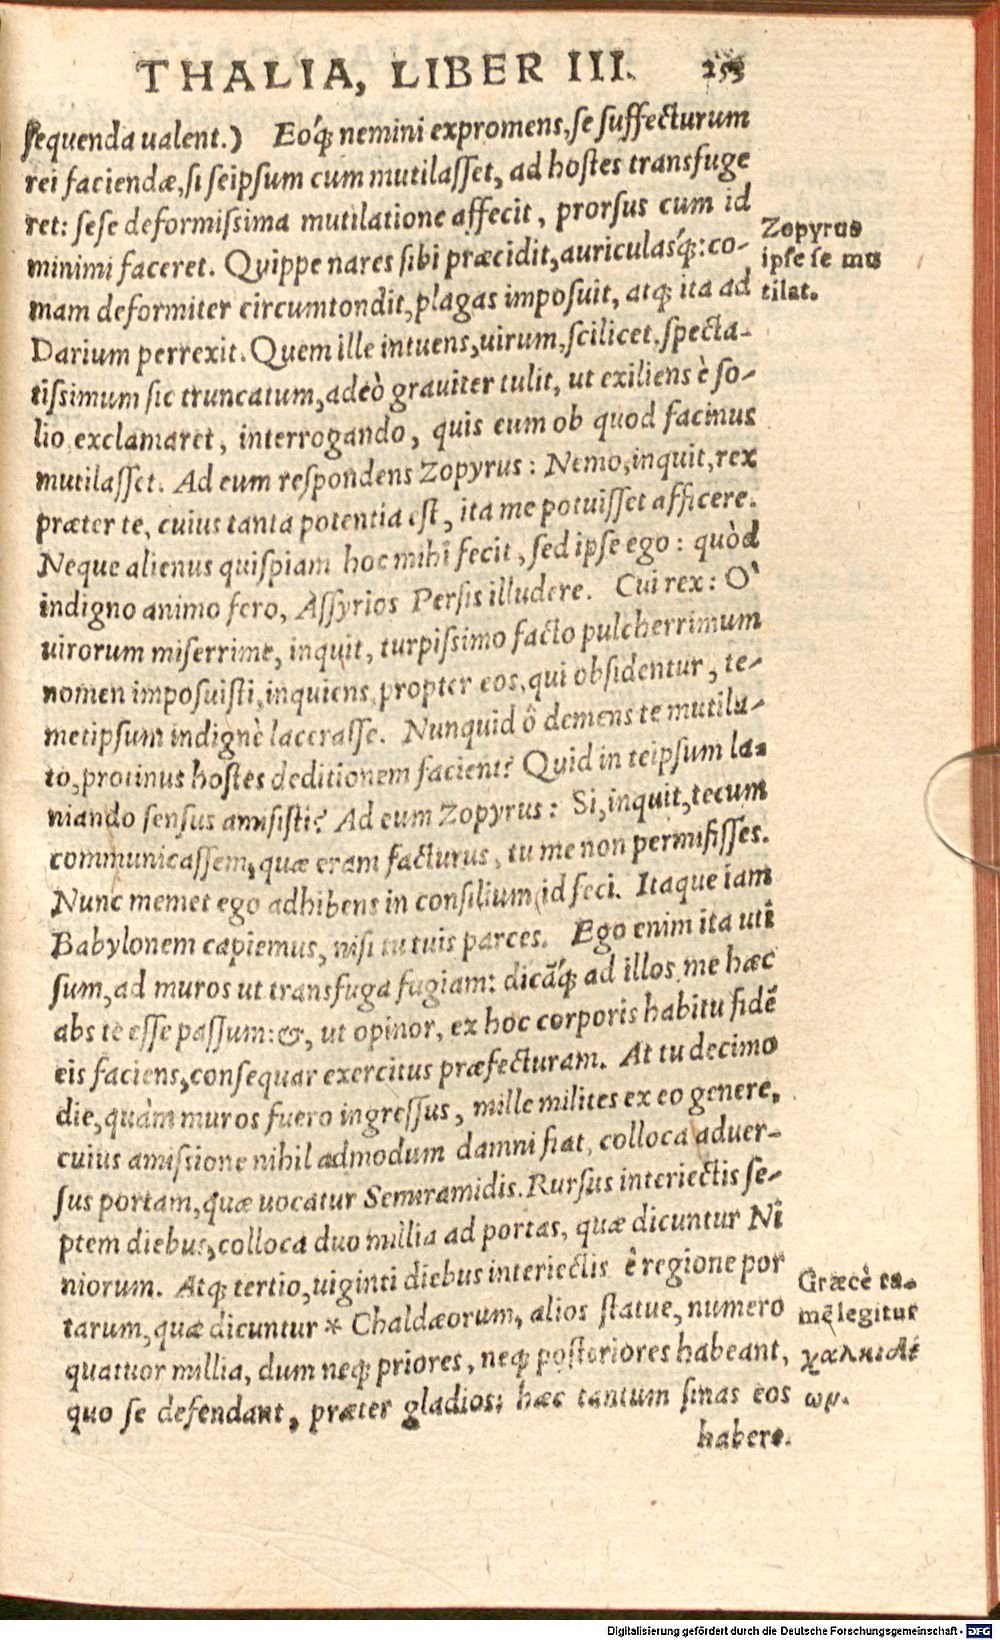 THALIA, LIBER III. 253
sequenda ualent.) Eoq́; nemini expromens, se suffecturum
rei faciendæ, si seipsum cum mutilasset, ad hostes transfuge
ret: sese deformissima mutilatione affecit, prorsus cum id
minimi faceret. Quippe nares sibi præcidit, auriculasq́;: co-
mam deformiter circumtondit, plagas imposuit, atq; ita ad
Darium perrexit. Quem ille intuens, uirum, scilicet, specta-
tissimum sic truncatum, adeò grauiter tulit, ut exiliens è so-
lio exclamaret, interrogando, quis eum ob quod facinus
mutilasset. Ad eum respondens Zopyrus: Nemo, inquit, rex
præter te, cuius tanta potentia est, ita me potuisset afficere.
Neque alienus quispiam hoc mihi fecit, sed ipse ego: quòd
indigno animo fero, Assyrios Persis illudere. Cui rex: O`
uirorum miserrime, inquit, turpissimo facto pulcherrimum
nomen imposuisti, inquiens, propter eos, qui obsidentur, te-
metipsum indignè lacerasse. Nunquid ô demens te mutila-
to, protinus hostes deditionem facient? Quid in teipsum la-
niando sensus amisisti? Ad eum Zopyrus: Si, inquit, tecum
communicassem, quæ eram facturus, tu me non permisisses.
Nunc memet ego adhibens in consilium id feci. Itaque iam
Babylonem capiemus, nisi tu tuis parces. Ego enim ita uti
sum, ad muros ut transfuga fugiam: dicãq́; ad illos me hæc
abs te esse passum: &, ut opinor, ex hoc corporis habitu fidẽ
eis faciens, consequar exercitus præfecturam. At tu decimo
die, quàm muros fuero ingressus, mille milites ex eo genere,
cuius amissione nihil admodum damni fiat, colloca aduer-
sus portam, quæ uocatur Semiramidis. Rursus interiectis se-
ptem diebus, colloca duo millia ad portas, quæ dicuntur Ni
niorum. Atq; tertio, uiginti diebus interiectis è regione por
tarum, quæ dicuntur * Chaldæorum, alios statue, numero
quatuor millia, dum neq; priores, neq; posteriores habeant,
quo se defendant, præter gladios: hæc tantum sinas eos
habere.
Zopyrus
ipse se mu
tilat.
Græcè ta-
mẽ legitur
χαλκιδέ
ων.
Digitalisierung gefördert durch die Deutsche Forschungsgemeinschaft - DFG